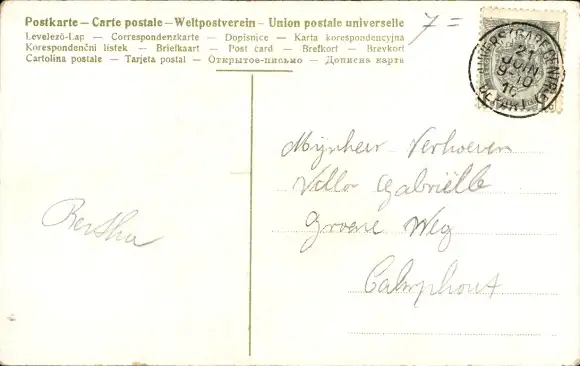 Postkarte – Carte postale – Weltpostverein – Union postale universelle
Levelező-Lap — Correspondenzkarte — Dopisnice — Karta korespondencyjna
Korespondenční lístek — Briefkaart — Post card — Brefkort — Brevkort
Cartolina postale — Tarjeta postal — Открытое-письмо — Дописна карта
7 =
ANVERS (GARE CENTRALE)
21
JUIN
9-10
Mijnheer Verhoeven
Villa Gabriëlle
Groene Weg
Calmphout
Bertha